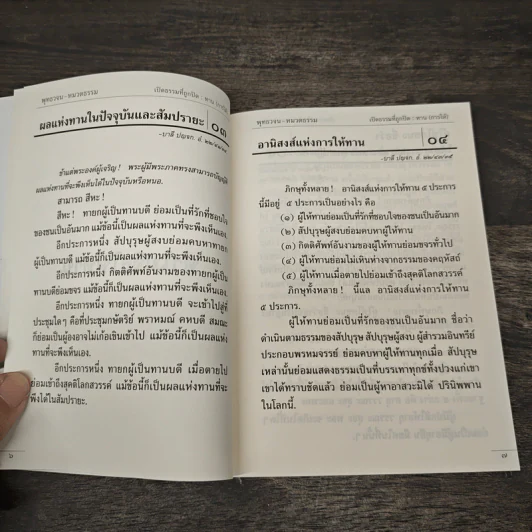 พุทธวจน - หมวดธรรม
เปิดธรรมที่ถูกปิด : ทาน (การให้)
ผลแห่งทานในปัจจุบันและสัมปรายะ
๐๓
-บาลี ปญฺจก. อํ.
ข้าแต่พระองค์ผู้เจริญ ! พระผู้มีพระภาคทรงสามารถบัญญัติ
ผลแห่งทานที่จะพึงเห็นได้ในปัจจุบันหรือหนอ.
สามารถ สีหะ !
สีหะ ! ทายกผู้เป็นทานบดี ย่อมเป็นที่รักที่ชอบใจ
ของชนเป็นอันมาก แม้ข้อนี้ก็เป็นผลแห่งทานที่จะพึงเห็นเอง.
อีกประการหนึ่ง สัปบุรุษผู้สงบย่อมคบหาทายก
ผู้เป็นทานบดี แม้ข้อนี้ก็เป็นผลแห่งทานที่จะพึงเห็นเอง.
อีกประการหนึ่ง กิตติศัพท์อันงามของทายกผู้เป็น
ทานบดีย่อมขจร แม้ข้อนี้ก็เป็นผลแห่งทานที่จะพึงเห็นเอง.
อีกประการหนึ่ง ทายกผู้เป็นทานบดี จะเข้าไปสู่ที่
ประชุมใดๆ คือที่ประชุมกษัตริย์ พราหมณ์ คหบดี สมณะ
ก็ย่อมเป็นผู้องอาจไม่เก้อเขินเข้าไป แม้ข้อนี้ก็เป็นผลแห่งทาน
ที่จะพึงเห็นเอง.
อีกประการหนึ่ง ทายกผู้เป็นทานบดี เมื่อตายไป
ย่อมเข้าถึงสุคติโลกสวรรค์ แม้ข้อนี้ก็เป็นผลแห่งทานที่จะ
พึงได้ในสัมปรายะ.
๖
พุทธวจน - หมวดธรรม
เปิดธรรมที่ถูกปิด : ทาน (การให้)
อานิสงส์แห่งการให้ทาน
๐๔
-บาลี ปญฺจก. อํ.
ภิกษุทั้งหลาย ! อานิสงส์แห่งการให้ทาน ๕ ประการ
นี้มีอยู่ ๕ ประการเป็นอย่างไร คือ
(๑) ผู้ให้ทานย่อมเป็นที่รักที่ชอบใจของชนเป็นอันมาก
(๒) สัปบุรุษผู้สงบย่อมคบหาผู้ให้ทาน
(๓) กิตติศัพท์อันงามของผู้ให้ทานย่อมขจรทั่วไป
(๔) ผู้ให้ทานย่อมไม่เหินห่างจากธรรมของคฤหัสถ์
(๕) ผู้ให้ทานเมื่อตายไปย่อมเข้าถึงสุคติโลกสวรรค์
ภิกษุทั้งหลาย ! นี้แล อานิสงส์แห่งการให้ทาน
๕ ประการ.
ผู้ให้ทานย่อมเป็นที่รักของชนเป็นอันมาก ชื่อว่า
ดำเนินตามธรรมของสัปบุรุษ สัปบุรุษผู้สงบ ผู้สำรวมอินทรีย์
ประกอบพรหมจรรย์ ย่อมคบหาผู้ให้ทานทุกเมื่อ สัปบุรุษ
เหล่านั้นย่อมแสดงธรรมเป็นที่บรรเทาทุกข์ทั้งปวงแก่เขา
เขาได้ทราบชัดแล้ว ย่อมเป็นผู้หาอาสวะมิได้ ปรินิพพาน
ในโลกนี้.
๗